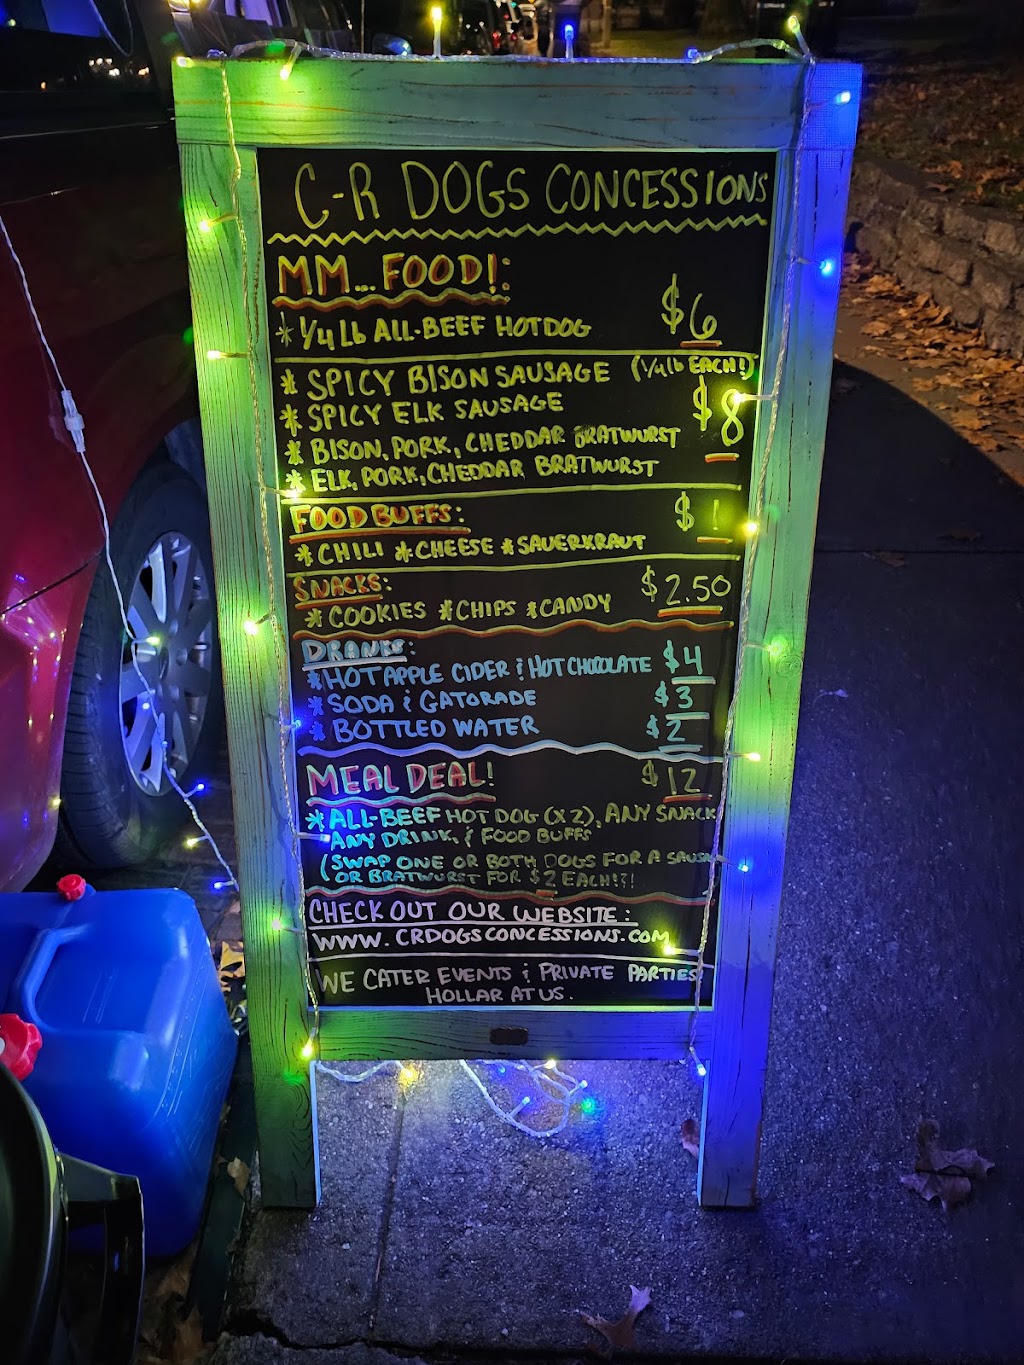 C-R DOGS CONCESSIONS
MM... FOOD!:
* 1/4 Lb ALL-BEEF HOTDOG $6
* SPICY BISON SAUSAGE (1/4 lb EACH!)
* SPICY ELK SAUSAGE $8
* BISON, PORK, CHEDDAR BRATWURST
* ELK, PORK, CHEDDAR BRATWURST
FOOD BUFFS: $1
* CHILI * CHEESE * SAUERKRAUT
SNACKS: $2.50
* COOKIES * CHIPS * CANDY
DRANKS:
* HOT APPLE CIDER & HOT CHOCOLATE $4
* SODA & GATORADE $3
* BOTTLED WATER $2
MEAL DEAL! $12
* ALL-BEEF HOT DOG (X2), ANY SNACK
ANY DRINK, & FOOD BUFFS
(SWAP ONE OR BOTH DOGS FOR A
OR BRATWURST FOR $2 EACH!?!
CHECK OUT OUR WEBSITE:
WWW.CRDOGSCONCESSIONS.COM
WE CATER EVENTS & PRIVATE PARTIES
HOLLAR AT US.